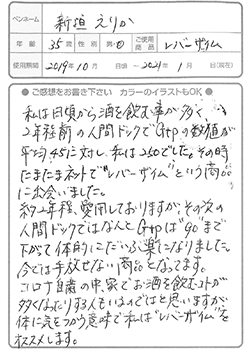 ペンネーム 新垣 えりか
年齢 35歳 性別 男・女 ご使用商品 レバーザイム
使用期間 2019年10月 日頃 ～ 2021年1月 日(現在)
◎ご感想をお書き下さい カラーのイラストもOK◎
私は日頃から酒を飲む事が多く、
2年程前の人間ドックでGtpの数値が
平均45に対し 私は250でした。その時
たまたまネットで"レバーザイム"という商品
に出会いました。
約2年程、愛用しておりますが、その次の
人間ドックではなんとGtpは"90"まで
下がって体的にだいぶ楽になりました。
今では手放せない商品となってます。
コロナ自粛の中家でお酒を飲むコトが
多くなったりする人もいるのではと思いますが、
体に気をつかう意味で私は"レバーザイム"を
オススメします。